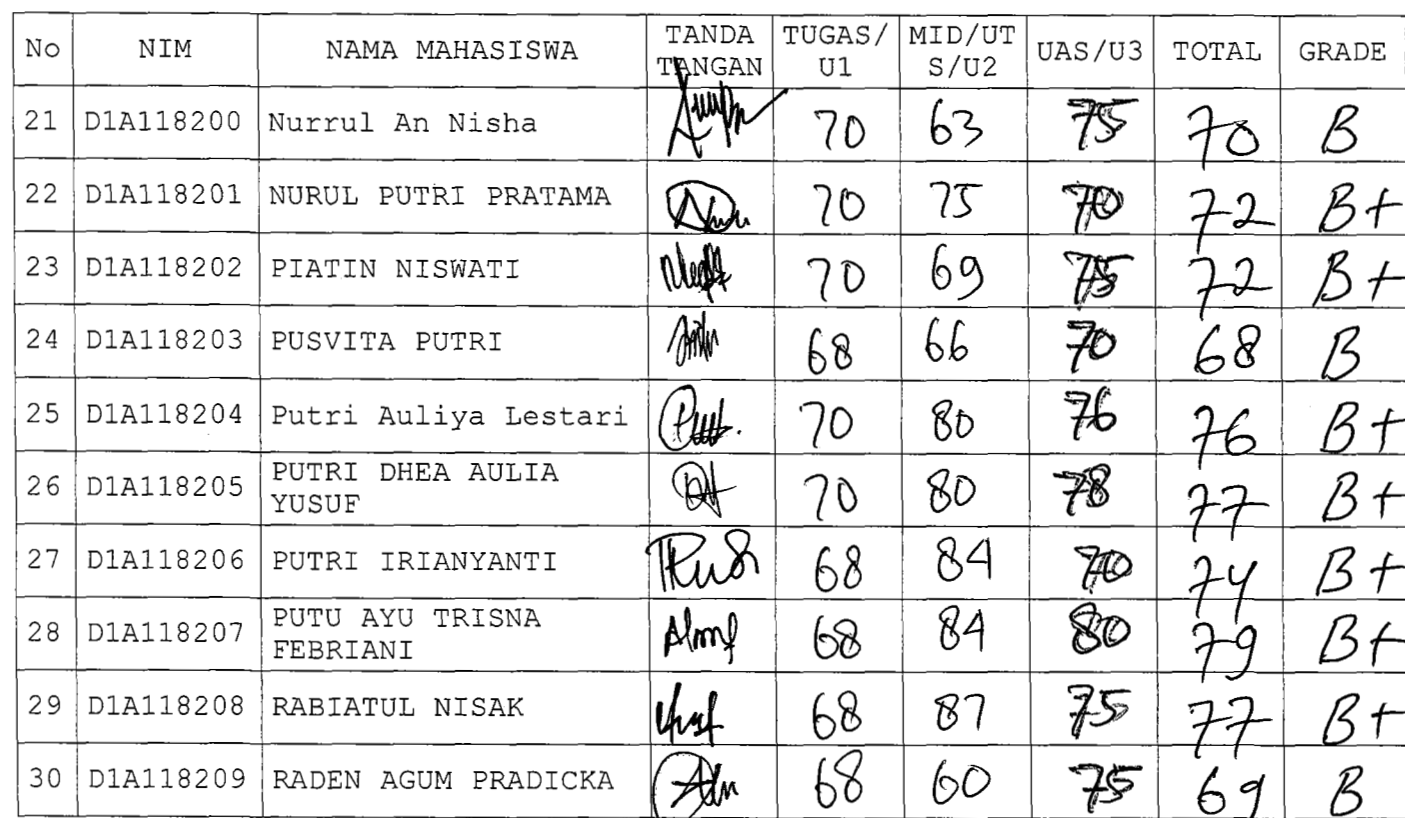 No NIM NAMA MAHASISWA TANDA TANGAN TUGAS/U1 MID/UTS/U2 UAS/U3 TOTAL GRADE
21 D1A118200 Nurrul An Nisha 70 63 75 70 B
22 D1A118201 NURUL PUTRI PRATAMA 70 75 70 72 B+
23 D1A118202 PIATIN NISWATI 70 69 75 72 B+
24 D1A118203 PUSVITA PUTRI 68 66 70 68 B
25 D1A118204 Putri Auliya Lestari 70 80 76 76 B+
26 D1A118205 PUTRI DHEA AULIA YUSUF 70 80 78 77 B+
27 D1A118206 PUTRI IRIANYANTI 68 84 70 74 B+
28 D1A118207 PUTU AYU TRISNA FEBRIANI 68 84 80 79 B+
29 D1A118208 RABIATUL NISAK 68 87 75 77 B+
30 D1A118209 RADEN AGUM PRADICKA 68 60 75 69 B